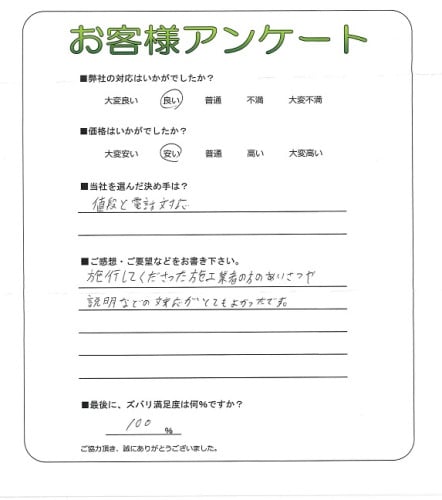 お客様アンケート
■弊社の対応はいかがでしたか?
大変良い 良い 普通 不満 大変不満
■価格はいかがでしたか?
大変安い 安い 普通 高い 大変高い
■当社を選んだ決め手は?
値段と電話対応
■ご感想・ご要望などをお書き下さい。
施行してくださった施工業者の方のあいさつや
説明などの対応がとてもよかったです。
■最後に、ズバリ満足度は何%ですか?
100 %
ご協力頂き、誠にありがとうございました。